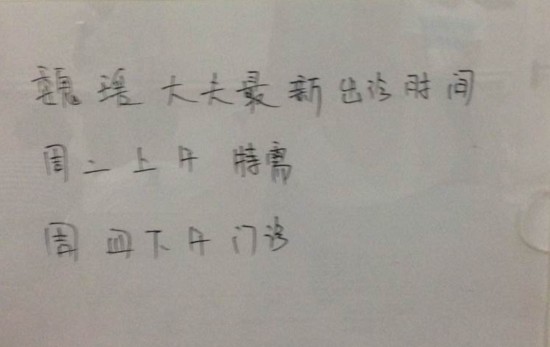 魏瑗大夫最新出诊时间
周二上午 特需
周四下午门诊